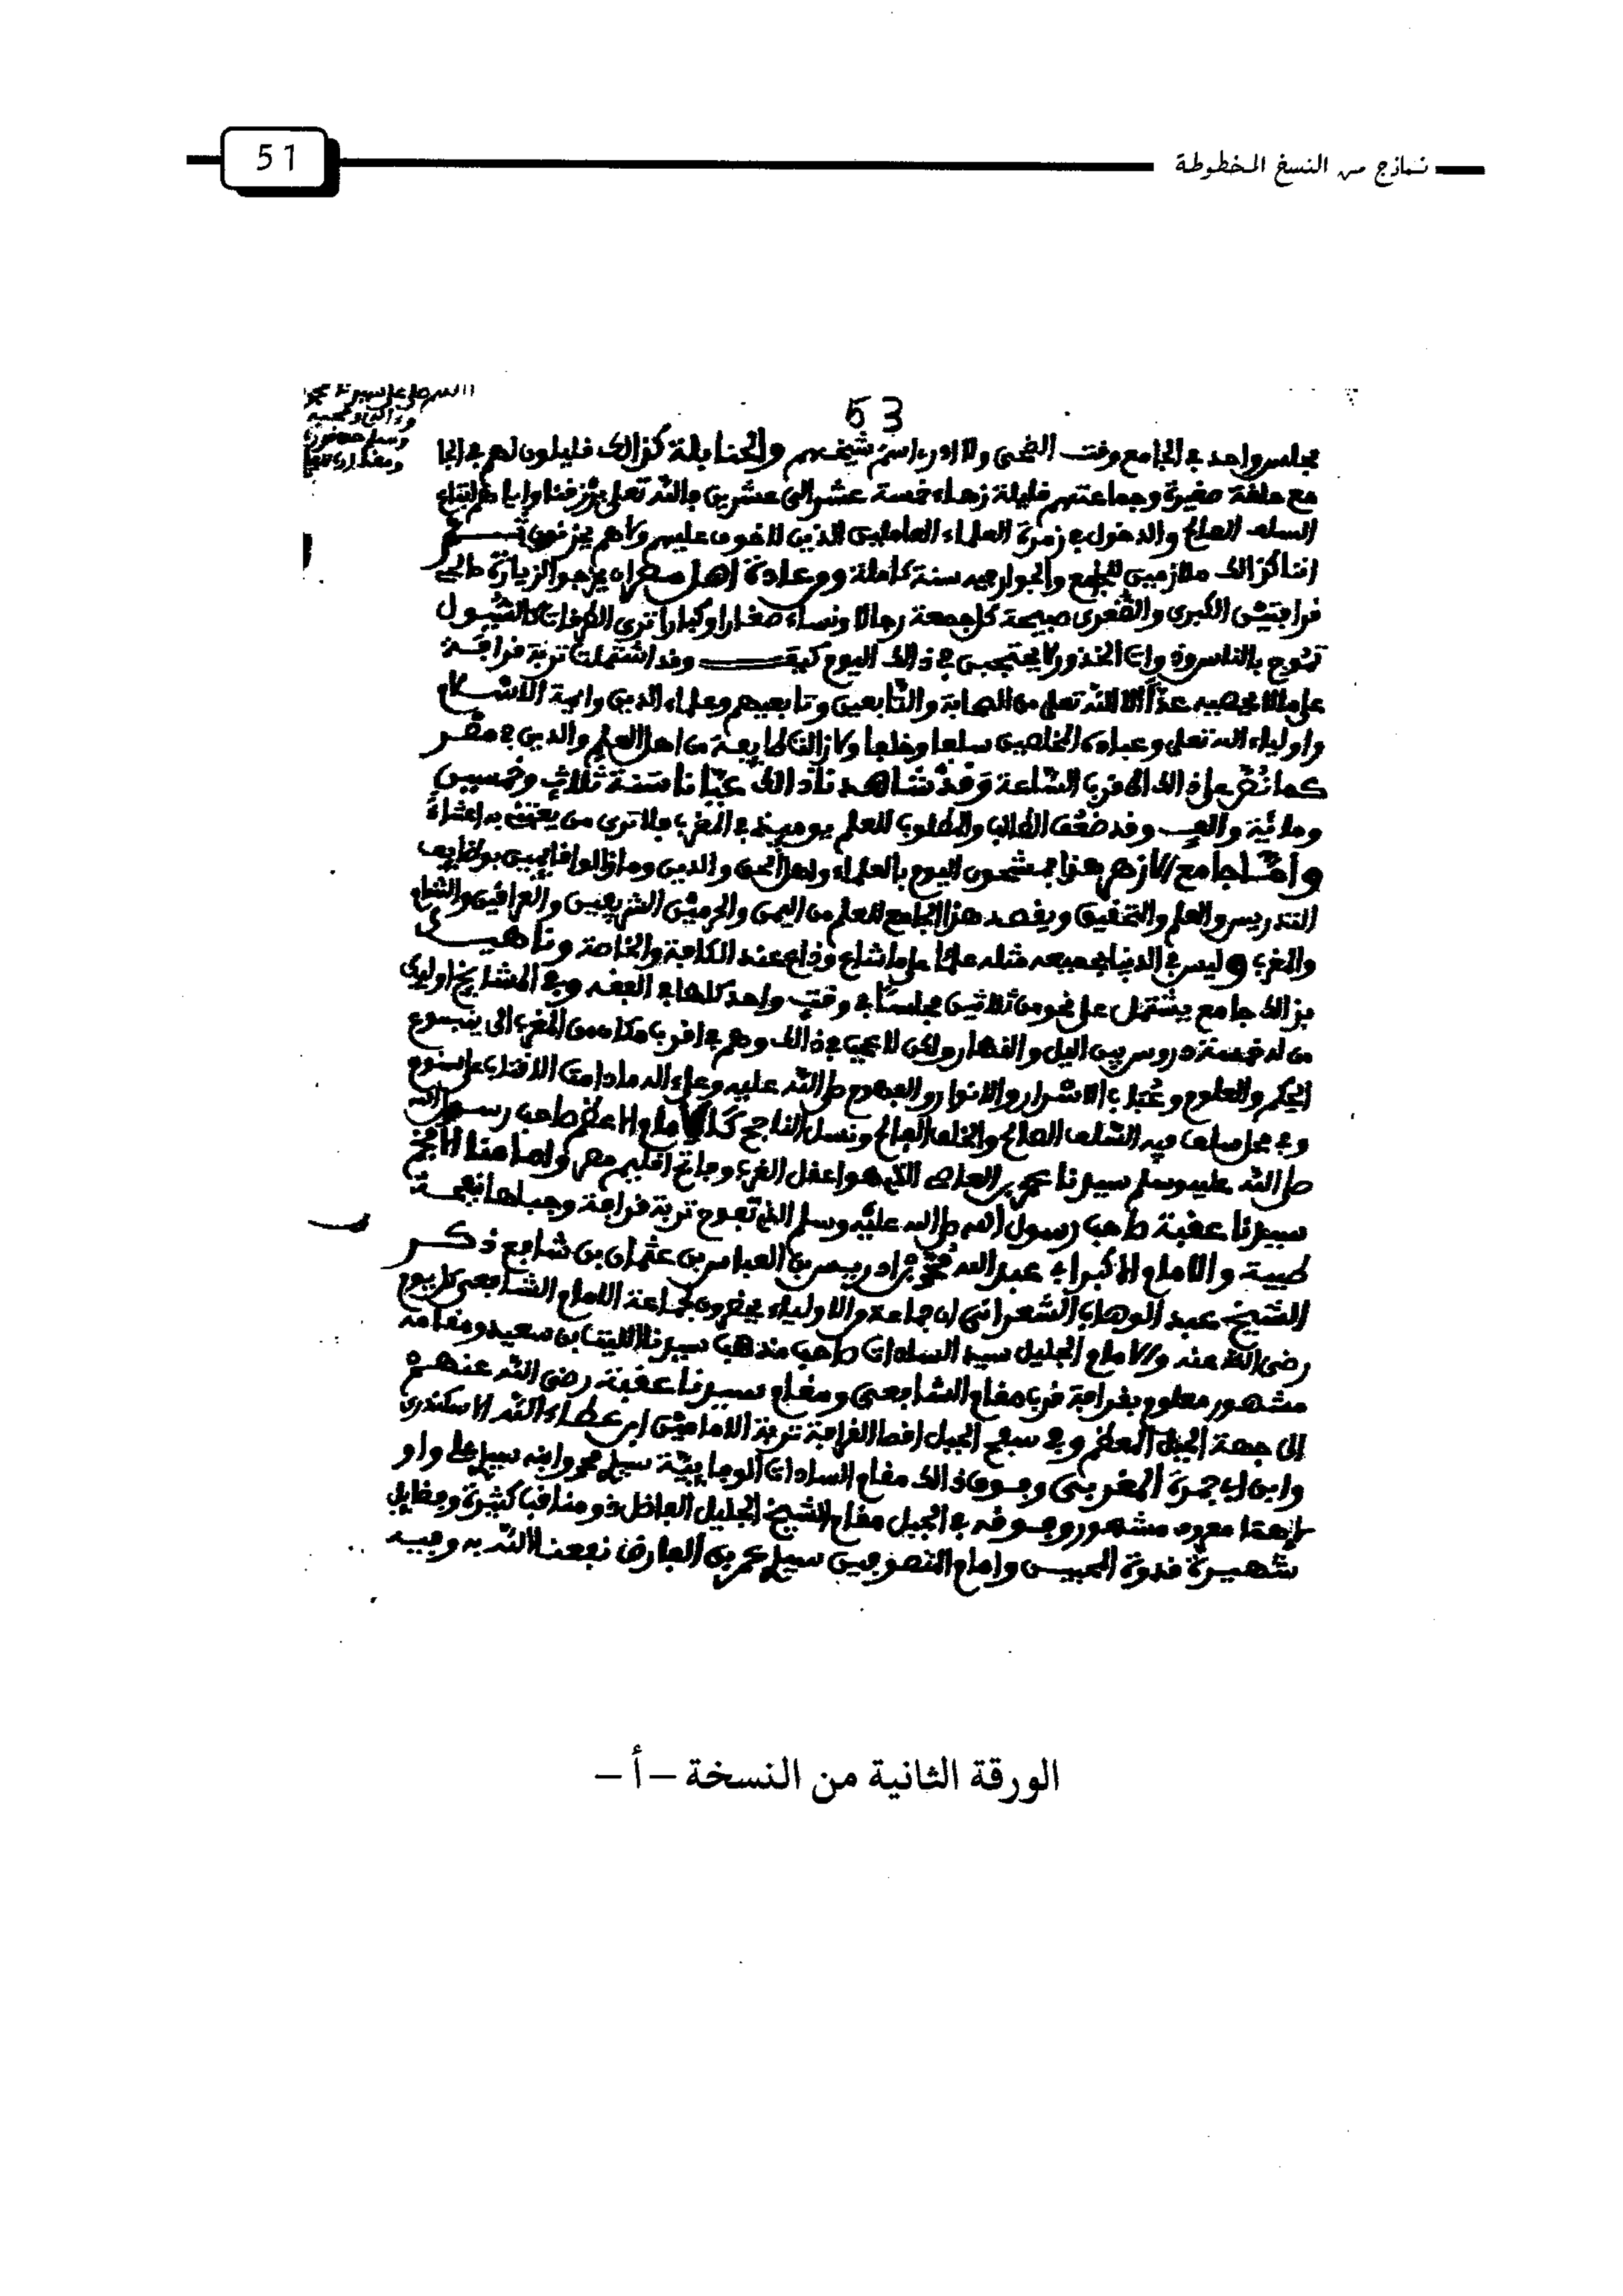 نماذج من النسخ المخطوطة
51
63
مجلس واحد في الجامع وقت الضحى ولا ادر باسم شيخهم والحنابلة كذالك قليلون لهم في الجا
مع حلقة صغيرة وجماعتهم قليلة زهاء خمسة عشر الى عشرين والله تعلى يرزقنا واياهم اتباع
السلف الصالح والدخول في زمرة العلماء العاملين الذين لا خوف عليهم ولا هم يحزنون
اننا كذالك ملازمين للجامع والجوار فيه سنة كاملة ومن عادة اهل مصر ان يخرجوا لزيارة صالحي
قرافتيش الكبرى والصغرى صبيحة كل جمعة رجالا ونساء صغارا وكبارا ترى الطرقات كالسيول
تموج بالناس وذوات الخدور لا يحتجبن في ذالك اليوم وقد اشتملت تربة قرافة
على ما لا يحصيه عدا الا الله تعلى من الصحابة والتابعين وتابعيهم وعلماء الدين وايمة الاسلام
واولياء الله تعلى وعباده المخلصين سلفا وخلفا ولا زالت طايفة من اهل العلم والدين في مصر
كما نص على ذالك الى قرب الساعة وقد شاهدنا ذالك عيانا سنة ثلاث وخمسين
ومائية والف وقد ضعف الطالب والمطلوب للعلم يوميذ في المغرب فلا ترى من يعتني به
وامّا جامع الازهر هذا فمشحون اليوم بالعلماء واهل الحق والدين وما زالوا قايمين بوظايف
التدريس والعلم والتحقيق ويقصد هذا الجامع للعلم من اليمن والحرمين الشريفين والعراقين والشام
والمغرب وليس في الدنيا بجميعه مثله على ما شاع وذاع عند الكافة والخاصة وناهيك
بذالك جامع يشتمل على نحو من ثلاثين مجلسا في وقت واحد كلها في الفقه وفي المشايخ اوليك
من له خمسة دروس بين اليل والنهار ولكن لا عجب في ذالك وهم في اقرب مكان من المغرب الى ينبوع
الحكم والعلوم والاسرار والانوار صلى الله عليه وعلى اله
وفي محل سلف فيه السلف الصالح والخلف الناجح كالامام الاعظم صاحب رسول الله
صلى الله عليه وسلم سيدنا عمر بن العاصى الذي هو وفاتح اقليم مصر وامامنا الافخم
سيدنا عقبة صاحب رسول الله صلى الله عليه وسلم الذي تفوح تربة قرافة وجبلها نفحة
طيبة والامام الاكبر ابي عبد الله محمد بن ادريس بن العباس بن عثمان بن شافع ذكر
الشيخ عبد الوهاب الشعراني ان جماعة من الاولياء يحضرون لجماعة الامام الشافعي كل يوم
رضي الله عنه والامام الجليل سيد السادات صاحب مذهب سيدنا الليث بن سعيد ومقامه
مشهور معلوم بقرافة قرب مقام الشافعي ومقام سيدنا عقبة رضي الله عنهم
الى جهة الجبل المعظم وفي سفح الجبل اقصا القرافة تربة الامامين ابن عطاء الله الاسكندري
وابن ابي جمرة المغربي وفوق ذالك مقام السادات الوفايية سيدي محمد وابنه سيدي علي
معروف مشهور وفوقه في الجبل مقام الشيخ الجليل الفاضل ذو مناقب كثيرة وفضايل
شهيرة قدوة المحبين وامام المتصوفين سيدي عمر بن الفارض نفعنا الله به وفيه
الورقة الثانية من النسخة – أ –